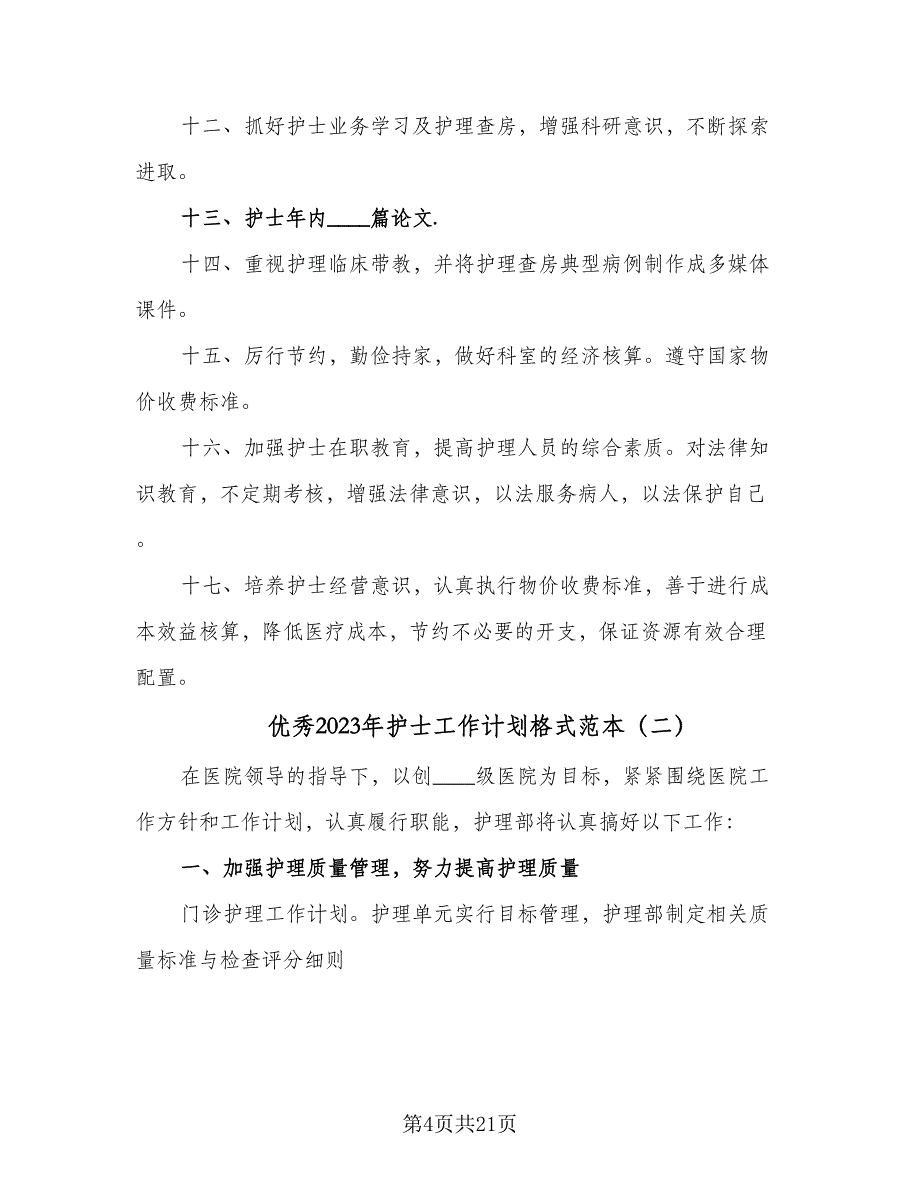 十二、抓好护士业务学习及护理查房，增强科研意识，不断探索
进取。
十三、护士年内____篇论文.
十四、重视护理临床带教，并将护理查房典型病例制作成多媒体
课件。
十五、厉行节约，勤俭持家，做好科室的经济核算。遵守国家物
价收费标准。
十六、加强护士在职教育，提高护理人员的综合素质。对法律知
识教育，不定期考核，增强法律意识，以法服务病人，以法保护自己
。
十七、培养护士经营意识，认真执行物价收费标准，善于进行成
本效益核算，降低医疗成本，节约不必要的开支，保证资源有效合理
配置。
优秀2023年护士工作计划格式范本（二）
在医院领导的指导下，以创____级医院为目标，紧紧围绕医院工
作方针和工作计划，认真履行职能，护理部将认真搞好以下工作：
一、加强护理质量管理，努力提高护理质量
门诊护理工作计划。护理单元实行目标管理，护理部制定相关质
量标准与检查评分细则
第4页共21页